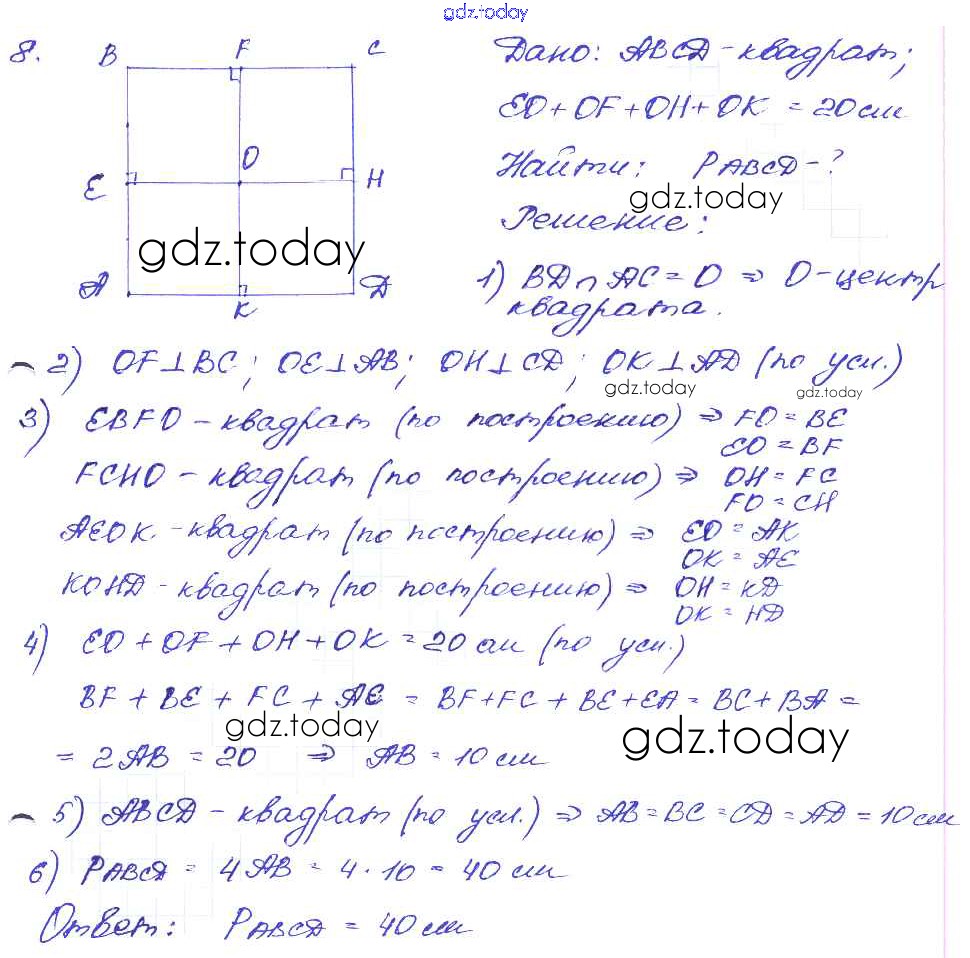 gdz.today
8.
B F C
E O H
A K D
gdz.today
Дано: ABCD - квадрат;
EO + OF + OH + OK = 20 см
Найти: PABCD - ?
gdz.today
Решение:
1) BD ∩ AC = O ⇒ O - центр
квадрата.
2) OF ⊥ BC; OE ⊥ AB; OH ⊥ CD; OK ⊥ AD (по усл.)
gdz.today gdz.today
3) EBFO - квадрат (по построению) ⇒ FO = BE
EO = BF
FCHO - квадрат (по построению) ⇒ OH = FC
FO = CH
AEOK - квадрат (по построению) ⇒ EO = AK
OK = AE
KOHD - квадрат (по построению) ⇒ OH = KD
OK = HD
4) EO + OF + OH + OK = 20 см (по усл.)
BF + BE + FC + AE = BF + FC + BE + EA = BC + BA =
gdz.today gdz.today
= 2AB = 20 ⇒ AB = 10 см
5) ABCD - квадрат (по усл.) ⇒ AB = BC = CD = AD = 10 см
6) PABCD = 4AB = 4 · 10 = 40 см
Ответ: PABCD = 40 см